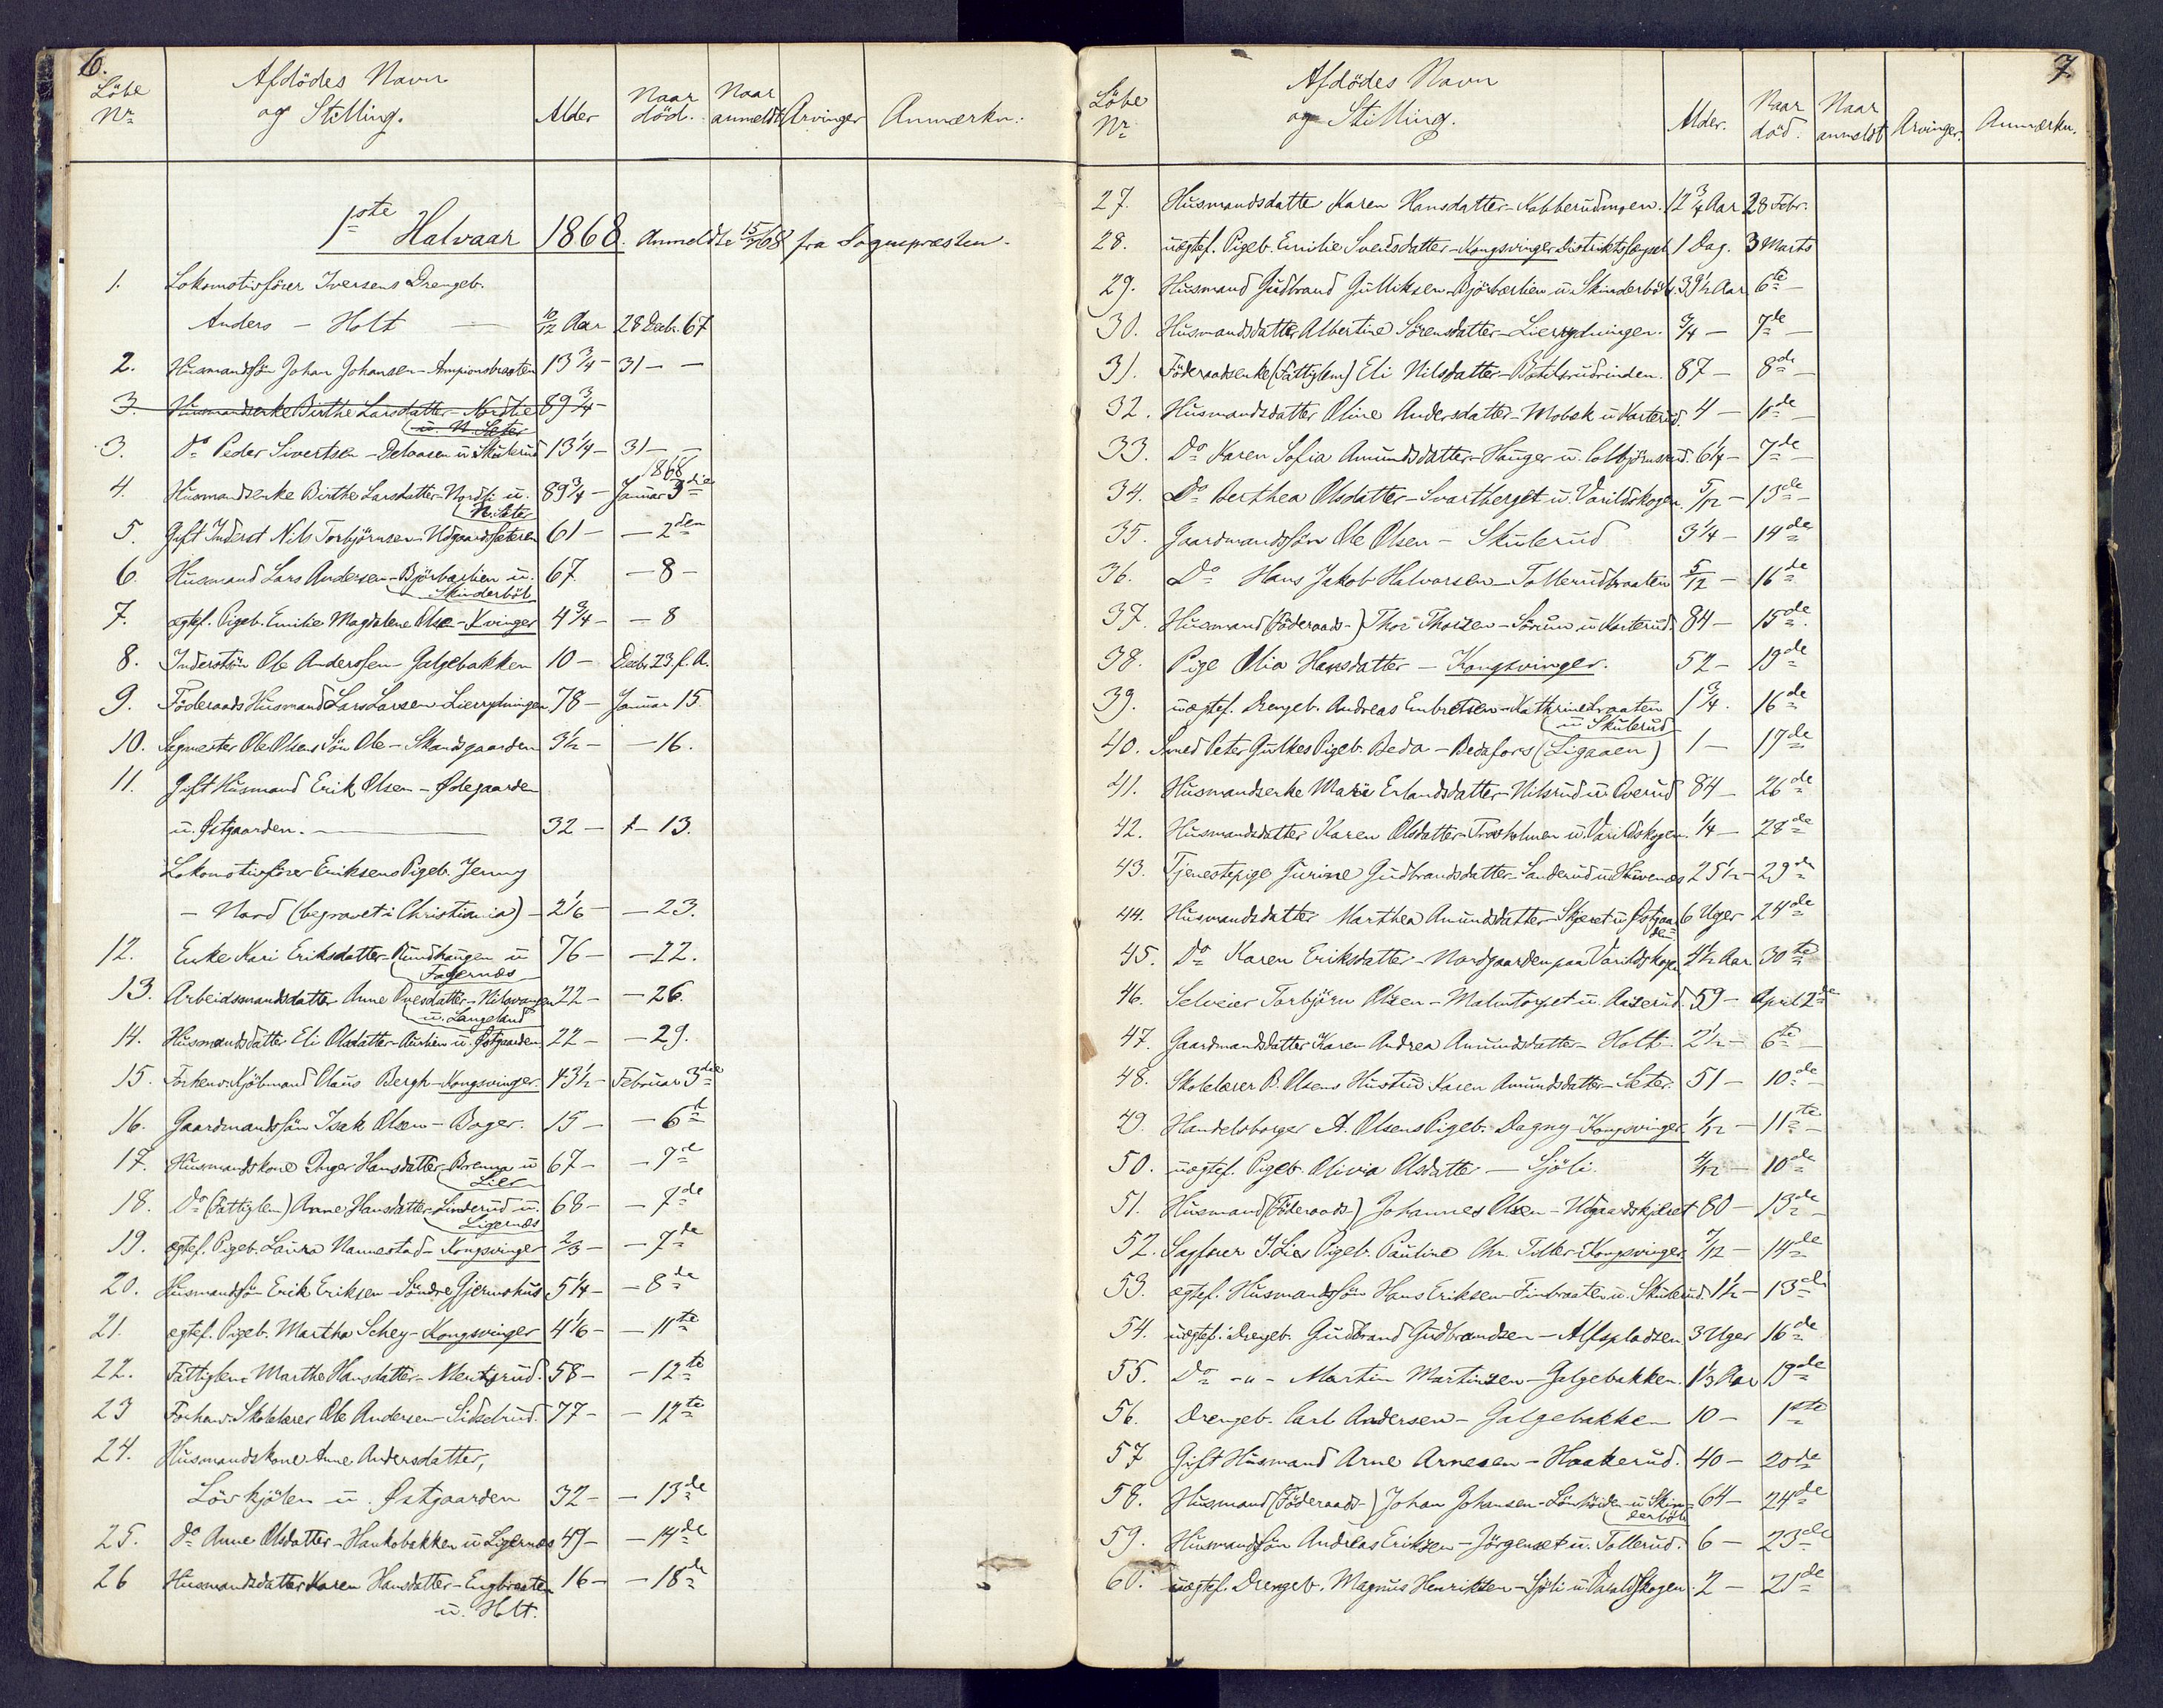 6.
Löbe Nr. Afdödes Navn og Stilling. Alder Naar död. Naar anmeldt Arvinger Anmærkn:
1ste Halvaar 1868. Anmeldte 15/7 68 fra Sognepresten.
1. Lokomotivförer Iversens Drengeb.
Anders - Holt — 10/12 Aar 28 Decbr. 67
2. Husmandssön Johan Johansen - Ampionsbraaten 13 3/4 - 31 - -
3. Husmandsenke Birthe Larsdatter - Nordlie 89 3/4 -
u. N. Seter
3. Do Peder Sivertsen - Delaasen u. Skulerud 13 1/4 - 31 - -
1868
4. Husmandsenke Birthe Larsdatter - Nordli u. 89 3/4 - Januar 3die
N. Seter
5. Gift Inderst Nils Torbjörnsen - Udgaardsseteren 61 - - 2den
6. Husmand Lars Andersen - Björbærlien u. 67 - 8 -
Skinderböl
7. ægtef. Pigeb. Emilie Magdalene Olse - Kvinger 4 3/4 - - 8
8. Inderstsön Ole Anderssen - Galgebakken 10 - Decbr 23 f. A.
9. Föderaads Husmand Lars Larsen - Lierrydningen 78 - Januar 15.
10. Sagmester Ole Olsens Sön Ole - Skandsgaarden 3 1/2 - - 16.
11. Gift Husmand Erik Olsen - Ødegaarden
u. Østgaarden. — 32 - - 13.
Lokomotivförer Eriksens Pigeb. Jenny
- Nord (begravet i Christiania) - 2 1/6 - - 23.
12. Enke Kari Eriksdatter - Rundhaugen u 76 - - 22.
Fagernæs
13. Arbeidsmandsdatter Anne Ovesdatter - Nilsvangen 22 - - 26.
u. Langeland
14. Husmandsdatter Eli Olsdatter - Aurlien u. Østgaarden. 22 - - 29.
15. Forhenv. Kjöbmand Olaus Bergh - Kongsvinger 43 1/2 - Februar 3die
16. Gaardmandssön Isak Olsen - Boger. 15 - - 6te
17. Husmandskone Inger Hansdatter - Brenna u 67 - - 7de
Lier
18. Do (Fattiglem) Anne Hansdatter - Linderud u. 68 - - 7de
Ligernæs
19. ægtef. Pigeb. Laura Nannestad - Kongsvinger 2/3 - - 7de
20. Husmandssön Erik Eriksen - Söndre Gjermshus 5 1/4 - - 8de
21. egtef. Pigeb. Martha Schey - Kongsvinger 4 1/6 - - 11te
22. Fattiglem Marthe Hansdatter - Mentzrud. 58 - - 12te
23 Forhenv. Skolelærer Ole Andersen - Sidselrud. 77 - - 12te
24. Husmandskone Anne Andersdatter,
Lövhjölen u. Østgaarden 32 - - 13de
25. Do Anne Olsdatter - Haukebakken u Ligernæs 49 - - 14de
26 Husmandsdatter Karen Hansdatter - Engbraaten 16 - - 18de
u. Holt.
7.
Löbe Nr. Afdödes Navn og Stilling. Alder. Naar död. Naar anmeldt Arvinger. Anmærkn.
27. Husmandsdatter Karen Hansdatter - Kabberudmoen. 12 3/4 Aar 28 Febr.
28. uægtef. Pigeb. Emilie Svensdatter - Kongsvinger Distriktsfængsel 1 Dag. 3 Marts
29. Husmand Gudbrand Gulliksen - Björbærlien u. Skinderböl. 39 1/2 Aar 6te -
30. Husmandsdatter Albertine Sörensdatter - Lierrydningen. 3/4 - 7de -
31. Föderaadsenke (Fattiglem) Eli Nilsdatter - Botilsrudrinden. 87 - 8de -
32. Husmandsdatter Oline Andersdatter - Mobæk u Karterud. 4 - 10de
33. Do Karen Sofia Amundsdatter - Hauger u. Colbjörnsrud. 6 1/4 - 7de -
34. Do Berthea Olsdatter - Svartberget u. Varildskogen. 5/12 - 13de -
35. Gaardmandssön Ole Olsen - Skulerud 3 1/4 - 14de
36. Do Hans Jakob Halvorsen - Tollerudbraaten 5/12 - 16de
37. Husmand (Föderaads-) Thor Thorsen - Sörum u Karterud. 84 - 15de
38. Pige Olia Hansdatter - Kongsvinger. 52 - 19de
39. uægtef. Drengeb. Andreas Embretsen - Kathrinebraaten 1 3/4. 16de
u Skulerud
40. Smed Peter Gulkes Pigeb. Beda - Bedafors (Ligaaen) 1 - 17de
41. Husmandsenke Mari Erlandsdatter - Nilsrud u. Overud 84 - 26de
42. Husmandsdatter Karen Olsdatter - Træholmen u. Varildskogen. 1/4 - 28de
43. Tjenestepige Gurine Gudbrandsdatter - Sanderud u. Huvenæs 25 1/2 - 29de
44. Husmandsdatter Marthea Amundsdatter - Skjæret u. Østgaar= 6 Uger 24de
den
45. Do Karen Eriksdatter - Nordgaarden paa Varildskogen 4 1/2 Aar 30te
46. Selveier Torbjörn Olsen - Malmtorpet u. Aaserud. 59 - April 2de
47. Gaardmandsdatter Karen Andrea Amundsdatter - Holt. 2 1/2 - 6te -
48. Skolelærer B. Olsens Hustru Karen Amundsdatter - Seter. 51 - 10de -
49. Handelsborger A. Olsens Pigeb. Dagny - Kongsvinger 1/12 - 11te -
50. uægtef. Pigeb. Olivia Olsdatter - Sjöli. 4/12 - 10de
51. Husmand (Föderaads-) Johannes Olsen - Udgaardskjelset 80 - 13de -
52. Sagförer I Lies Pigeb. Pauline Chr. Tilke - Kongsvinger. 7/12 - 14de
53. ægtef. Husmandssön Hans Eriksen - Finbraaten u. Skulerud. 1 1/2 - 13de
54. uægtef. Drengeb. Gudbrand Gudbrandsen - Alfspladsen 3 Uger 16de
55. Do -"- Martin Martinsen - Galgebakken. 1 1/3 Aar 19de
56. Drengeb. Carl Andersen - Galgebakken 10 - 1ste
57 Gift Husmand Arne Arnesen - Haakerud. 40 - 20de
58. Husmand (Föderaads-) Johan Johansen - Lönhöiden u Skin= 64 - 24de
derböl
59. Husmandssön Andreas Eriksen - Jörgenset u. Tollerud. 6 - 23de
60. uægtef. Drengeb. Magnus Henriksen - Sjöli u Varaldskogen. 2 - 21de